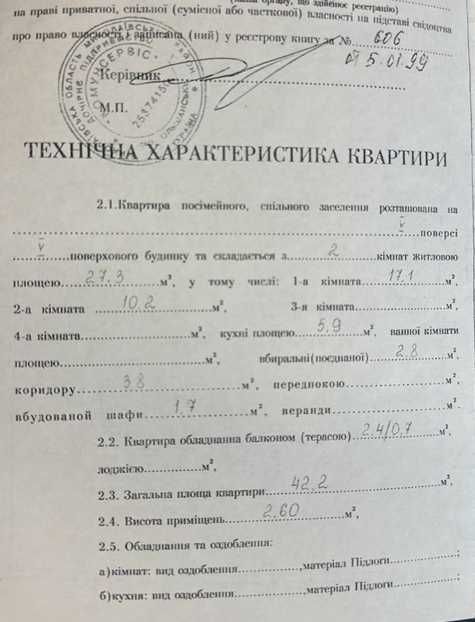 (назва органу, що здійснює реєстрацію)
на праві приватної, спільної (сумісної або часткової) власності на підставі свідоцтва
про право власності і записана (ний) у реєстрову книгу за № 606
от 5.01.99
Керівник
М.П.
КОМУНСЕРВІС
ТЕХНІЧНА ХАРАКТЕРИСТИКА КВАРТИРИ
2.1.Квартира посімейного, спільного заселення розташована на
V поверсі
V поверхового будинку та складається з 2 кімнат житловою
площею 27,3 м², у тому числі: 1-а кімната 17,1 м²,
2-а кімната 10,2 м², 3-я кімната м²,
4-а кімната м², кухні площею 5,9 м², ванної кімнати
площею м², вбиральні(поєднаної) 2,8 м²,
коридору 3,8 м², передпокою м²,
вбудованой шафи 1,7 м², веранди м²
2.2. Квартира обладнанна балконом (терасою) 2,4/0,7 м²,
лоджією м²,
2.3. Загальна площа квартири 42,2 м²,
2.4. Висота приміщень 2,60 м²,
2.5. Обладнання та оздоблення:
а)кімнат: вид оздоблення ,матеріал Підлоги ;
б)кухня: вид оздоблення ,матеріал Підлоги ;